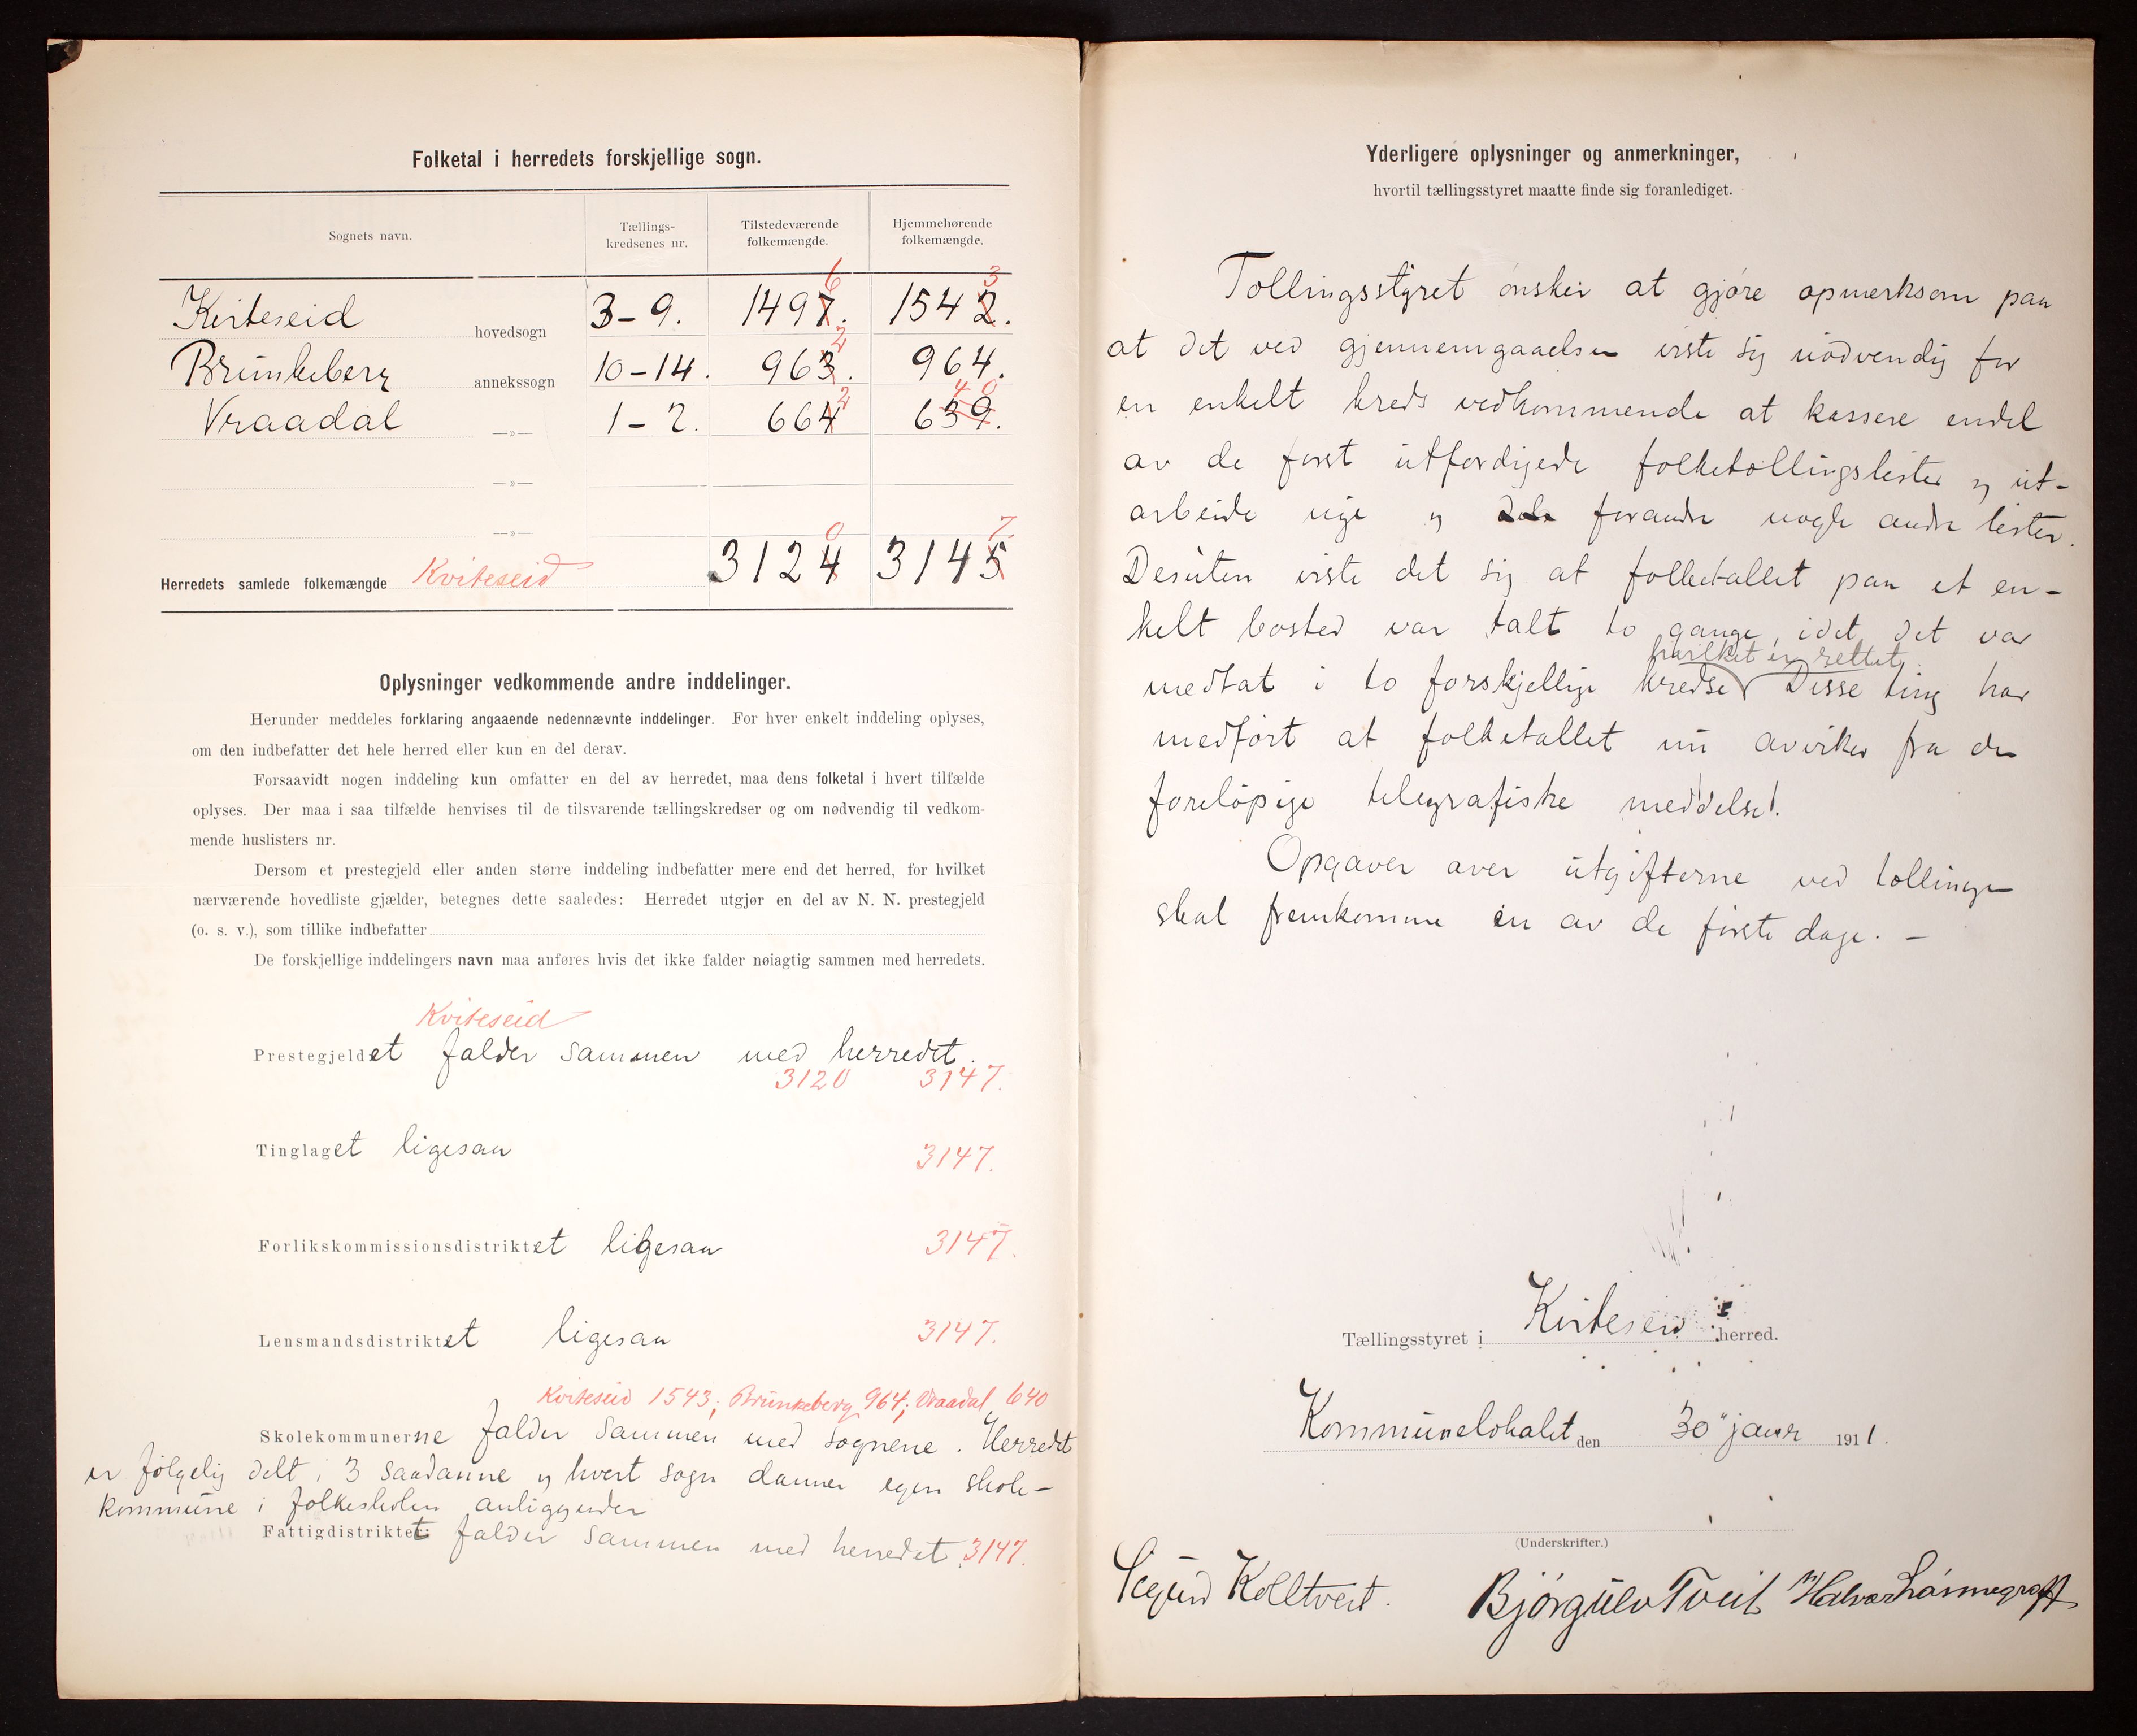 Folketal i herredets forskjellige sogn.
Sognets navn. Tællings-kredsenes nr. Tilstedeværende folkemængde. Hjemmehørende folkemængde.
6 3
Kviteseid hovedsogn 3-9. 1497. 1542.
2
Brunkeberg annekssogn 10-14. 963. 964.
2 40
Vraadal —»— 1-2. 664 639.
—»—
—»—
0 7.
Herredets samlede folkemængde Kviteseid 3124 3145
Oplysninger vedkommende andre inddelinger.
Herunder meddeles forklaring angaaende nedennævnte inddelinger. For hver enkelt inddeling oplyses,
om den indbefatter det hele herred eller kun en del derav.
Forsaavidt nogen inddeling kun omfatter en del av herredet, maa dens folketal i hvert tilfælde
oplyses. Der maa i saa tilfælde henvises til de tilsvarende tællingskredser og om nødvendig til vedkom-
mende huslisters nr.
Dersom et prestegjeld eller anden større inddeling indbefatter mere end det herred, for hvilket
nærværende hovedliste gjælder, betegnes dette saaledes: Herredet utgjør en del av N. N. prestegjeld
(o. s. v.), som tillike indbefatter
De forskjellige inddelingers navn maa anføres hvis det ikke falder nøiagtig sammen med herredets.
Kviteseid
Prestegjeldet falder sammen med herredet.
3120 3147.
Tinglaget ligesaa 3147.
Forlikskommissionsdistriktet ligesaa 3147.
Lensmandsdistriktet ligesaa 3147.
Kviteseid 1543; Brunkeberg 964; Vraadal 640
Skolekommunerne falder sammen med sognene. Herredet
er følgelig delt i 3 saadanne og hvert sogn danner egen skole-
kommune i folkeskolen anliggender
Fattigdistriktet falder sammen med herredet 3147.
Yderligere oplysninger og anmerkninger,
hvortil tællingsstyret maatte finde sig foranlediget.
Tællingsstyret ønsker at gjøre opmerksom paa
at det ved gjennemgaaelsen viste sig nødvendig for
en enkelt kreds vedkommende at kassere endel
av de først utfærdigede folketællingslister og ut-
arbeide nye og forandre nogle andre lister.
Desuten viste det sig at folketallet paa et en-
kelt bosted var talt to gange, idet det var
hvilket er rettet.
medtat i to forskjellige kredse Disse ting har
medført at folketallet nu avviker fra den
foreløpige telegrafiske meddelse.
Opgaver over utgifterne ved tællingen
skal fremkomme en av de første dage. –
Tællingsstyret i Kviteseid herred.
Kommunelokalet den 30 januar 1911.
(Underskrifter.)
Bjørgulv Tveit